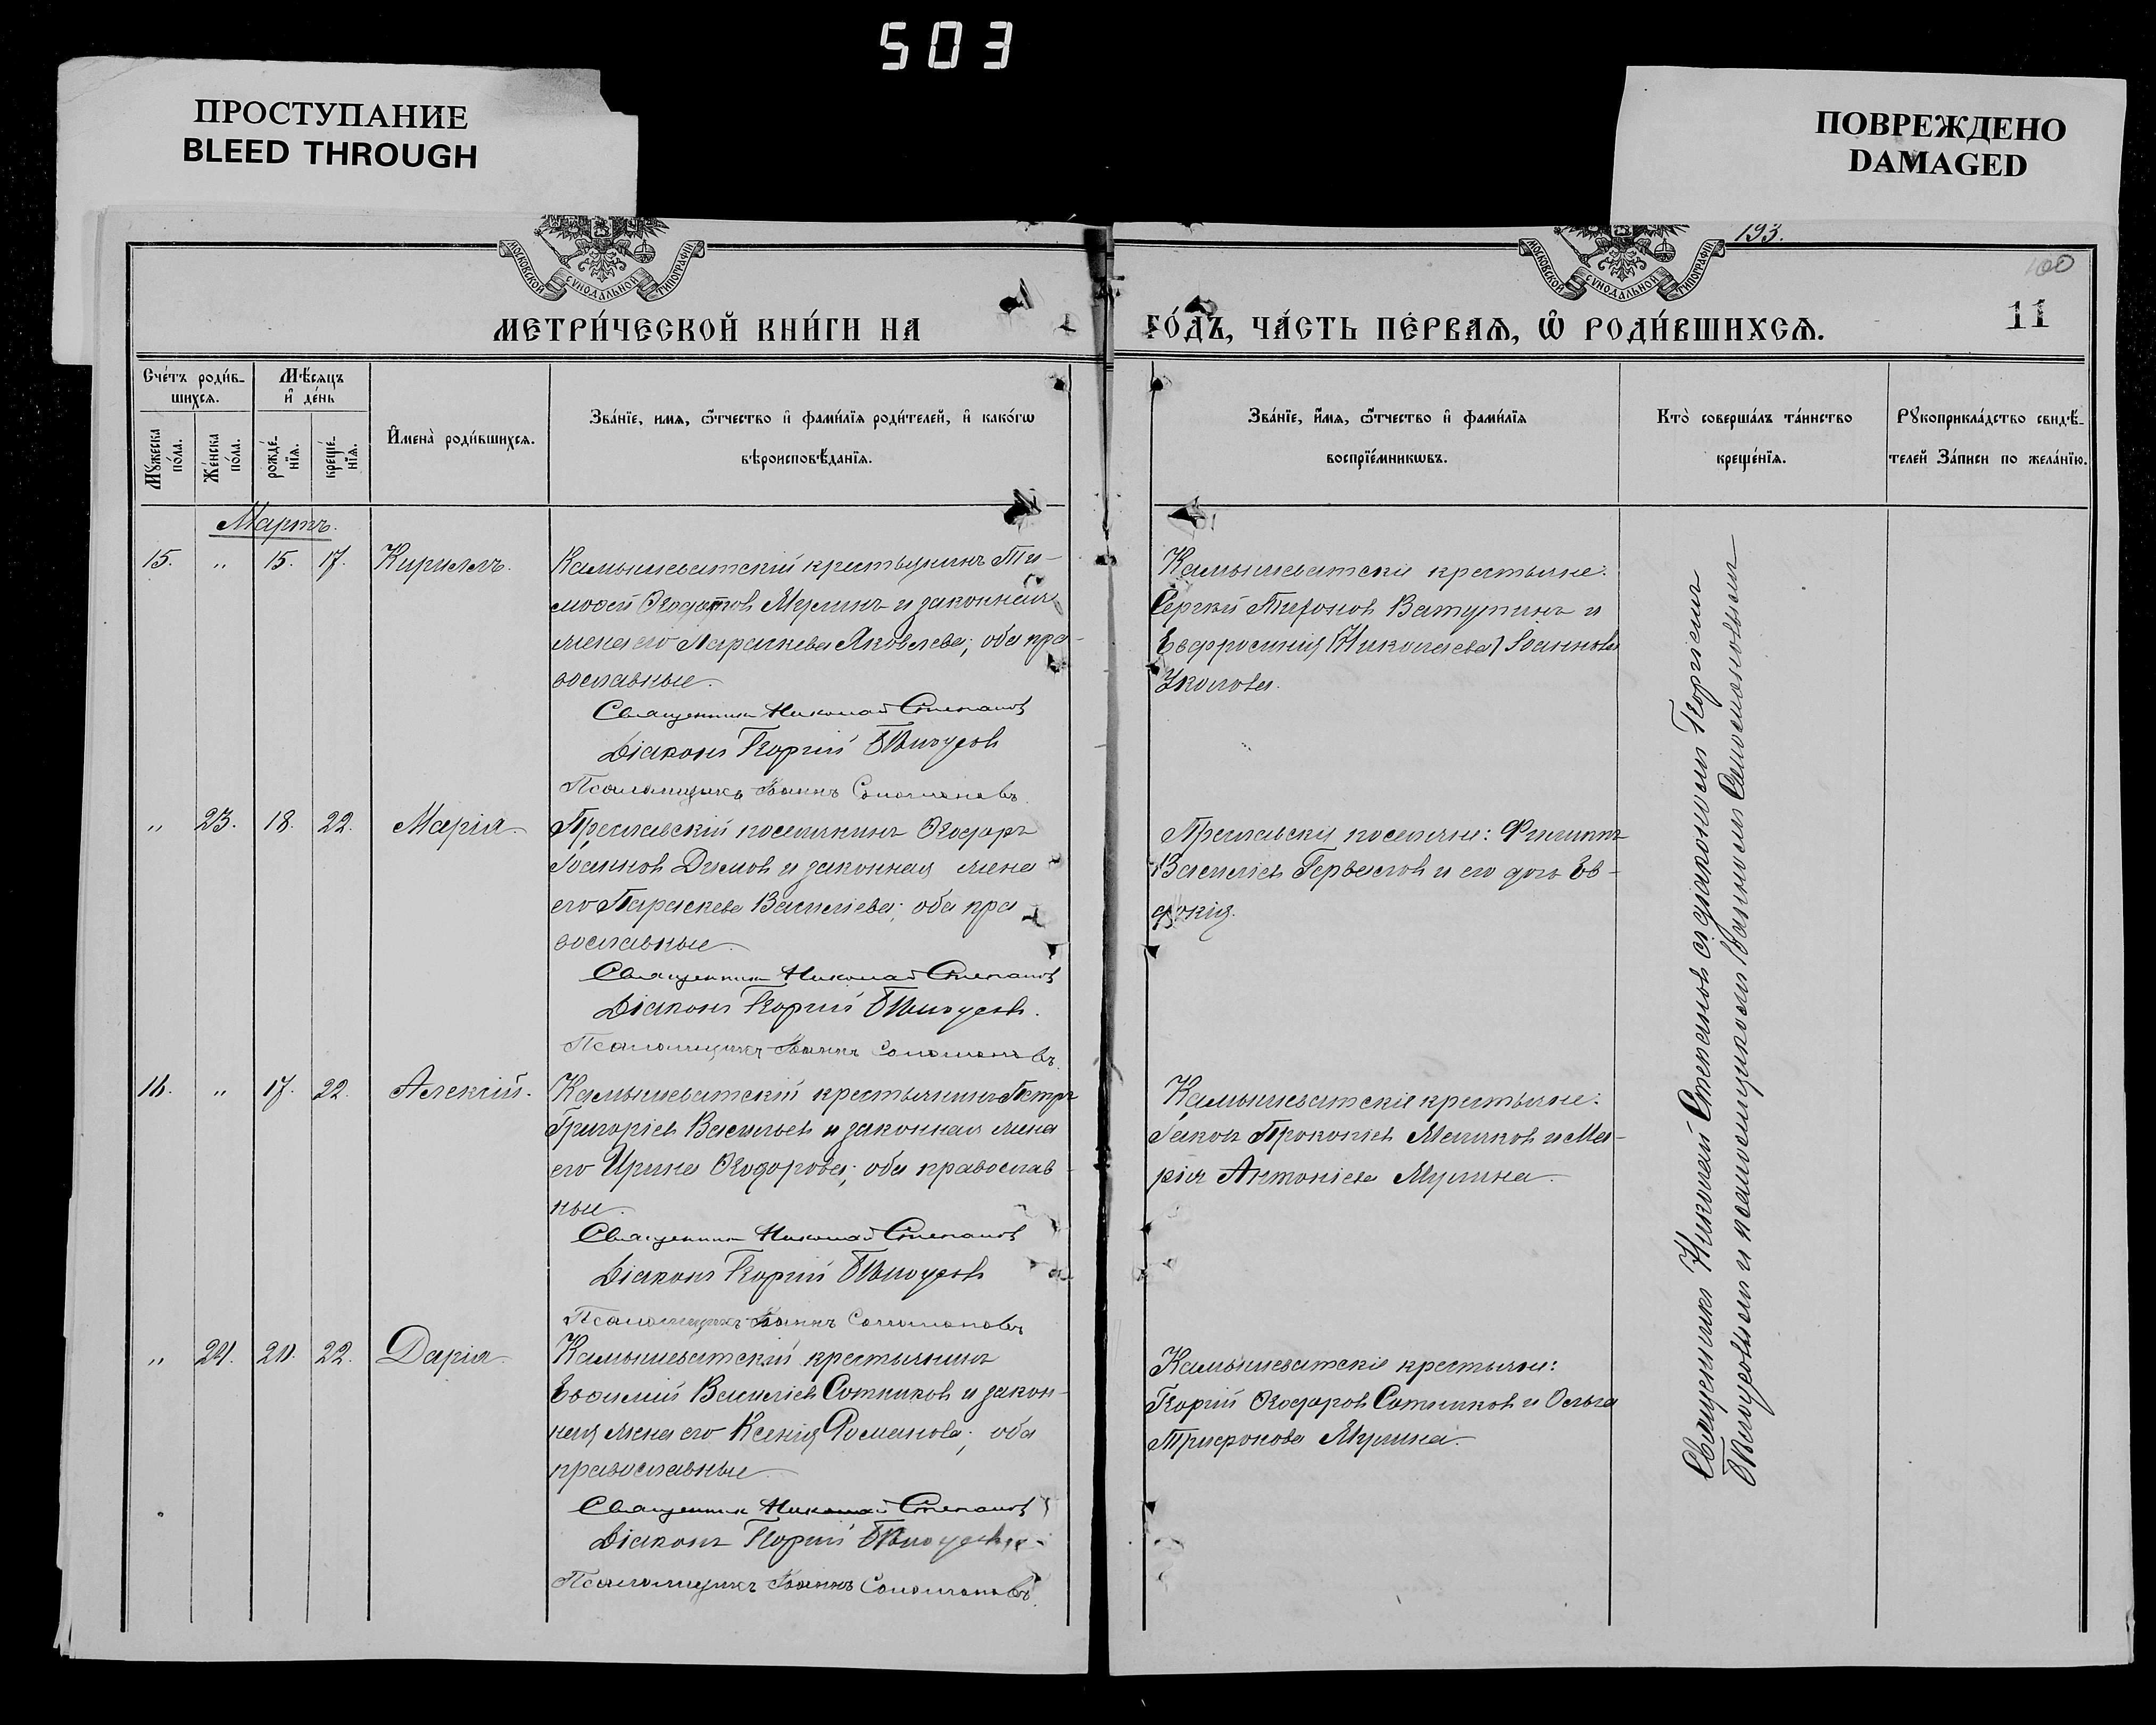 503
ПРОСТУПАНИЕ
BLEED THROUGH
ПОВРЕЖДЕНО
DAMAGED
МОСКОВСКОЙ СУНОДАЛЬНОЙ ТИПОГРАФІИ
МОСКОВСКОЙ СУНОДАЛЬНОЙ ТИПОГРАФІИ
193.
100
11
МЕТРИ́ЧЕСКОЙ КНИ́ГИ НА
ГО́ДЪ, ЧА́СТЬ ПЕ́РВАѦ, Ѡ РОДИ́ВШИХСѦ.
Сче́тъ роди́в-
шихсѧ.
Мꙋжеска
по́ла.
Же́нска
по́ла.
Мѣ́сѧцъ
и҆ де́нь
рожде́-
нїѧ.
креще́-
нїѧ.
И҆мена̀ роди́вшихсѧ.
Зва́нїе, имѧ, ѻ҆́тчество и҆ фами́лїѧ роди́телей, и҆ како́гѡ
вѣроисповѣ́данїѧ.
Зва́нїе, и҆́мѧ, ѻ҆́тчество и҆ фами́лїѧ
воспрїе́мникѡвъ.
Кто̀ соверша́лъ та́инство
креще́нїѧ.
Рꙋкоприкла́дство свидѣ́-
телей За́писи по жела́нїю.
Мартъ.
15. „ 15. 17. Кириллъ.
Камышеватскій крестьянинъ Ти-
моѳей Ѳеодотовъ Мулинъ и законная
жена его Параскева Яковлева; оба пра-
вославные.
Священникъ Николай Степановъ
Діаконъ Георгій
Псаломщикъ Іоаннъ Соломоновъ.
Камышеватскіе крестьяне:
Сергѣй Тихоновъ Ватутинъ и
Евфросинія (Николаева) Іоаннова
„ 23. 18. 22. Марія.
Преславскій поселянинъ Ѳеодоръ
Іоанновъ Димовъ и законная жена
его Параскева Василіева; оба пра
вославные.
Священникъ Николай Степановъ
Діаконъ Георгій
Псаломщикъ Іоаннъ Соломоновъ.
Преславскіе поселяне: Филиппъ
Василіевъ и его дочь Ев-
докія.
16. „ 17. 22. Алексій.
Камышеватскій крестьянинъ Петръ
Григоріевъ Васильевъ и законная жена
его Ирина Ѳеодорова; оба православ-
ные.
Священникъ Николай Степановъ
Діаконъ Георгій
Псаломщикъ Іоаннъ Соломоновъ
Камышеватскіе крестьяне:
Іаковъ Прокопіевъ и Ма-
рія Антоніева Мулина.
„ 24. 20. 22. Дарія.
Камышеватскій крестьянинъ
Евѳимій Василіевъ Сотниковъ и закон-
ная жена его Ксенія Романова; оба
православные.
Священникъ Николай Степановъ
Діаконъ Георгій
Псаломщикъ Іоаннъ Соломоновъ.
Камышеватскіе крестьяне:
Георгій Ѳеодоровъ Сотниковъ и Ольга
Трифонова Мулина.
Священникъ Николай Степановъ съ діакономъ Георгіемъ
и псаломщикомъ Іоанномъ Соломоновымъ